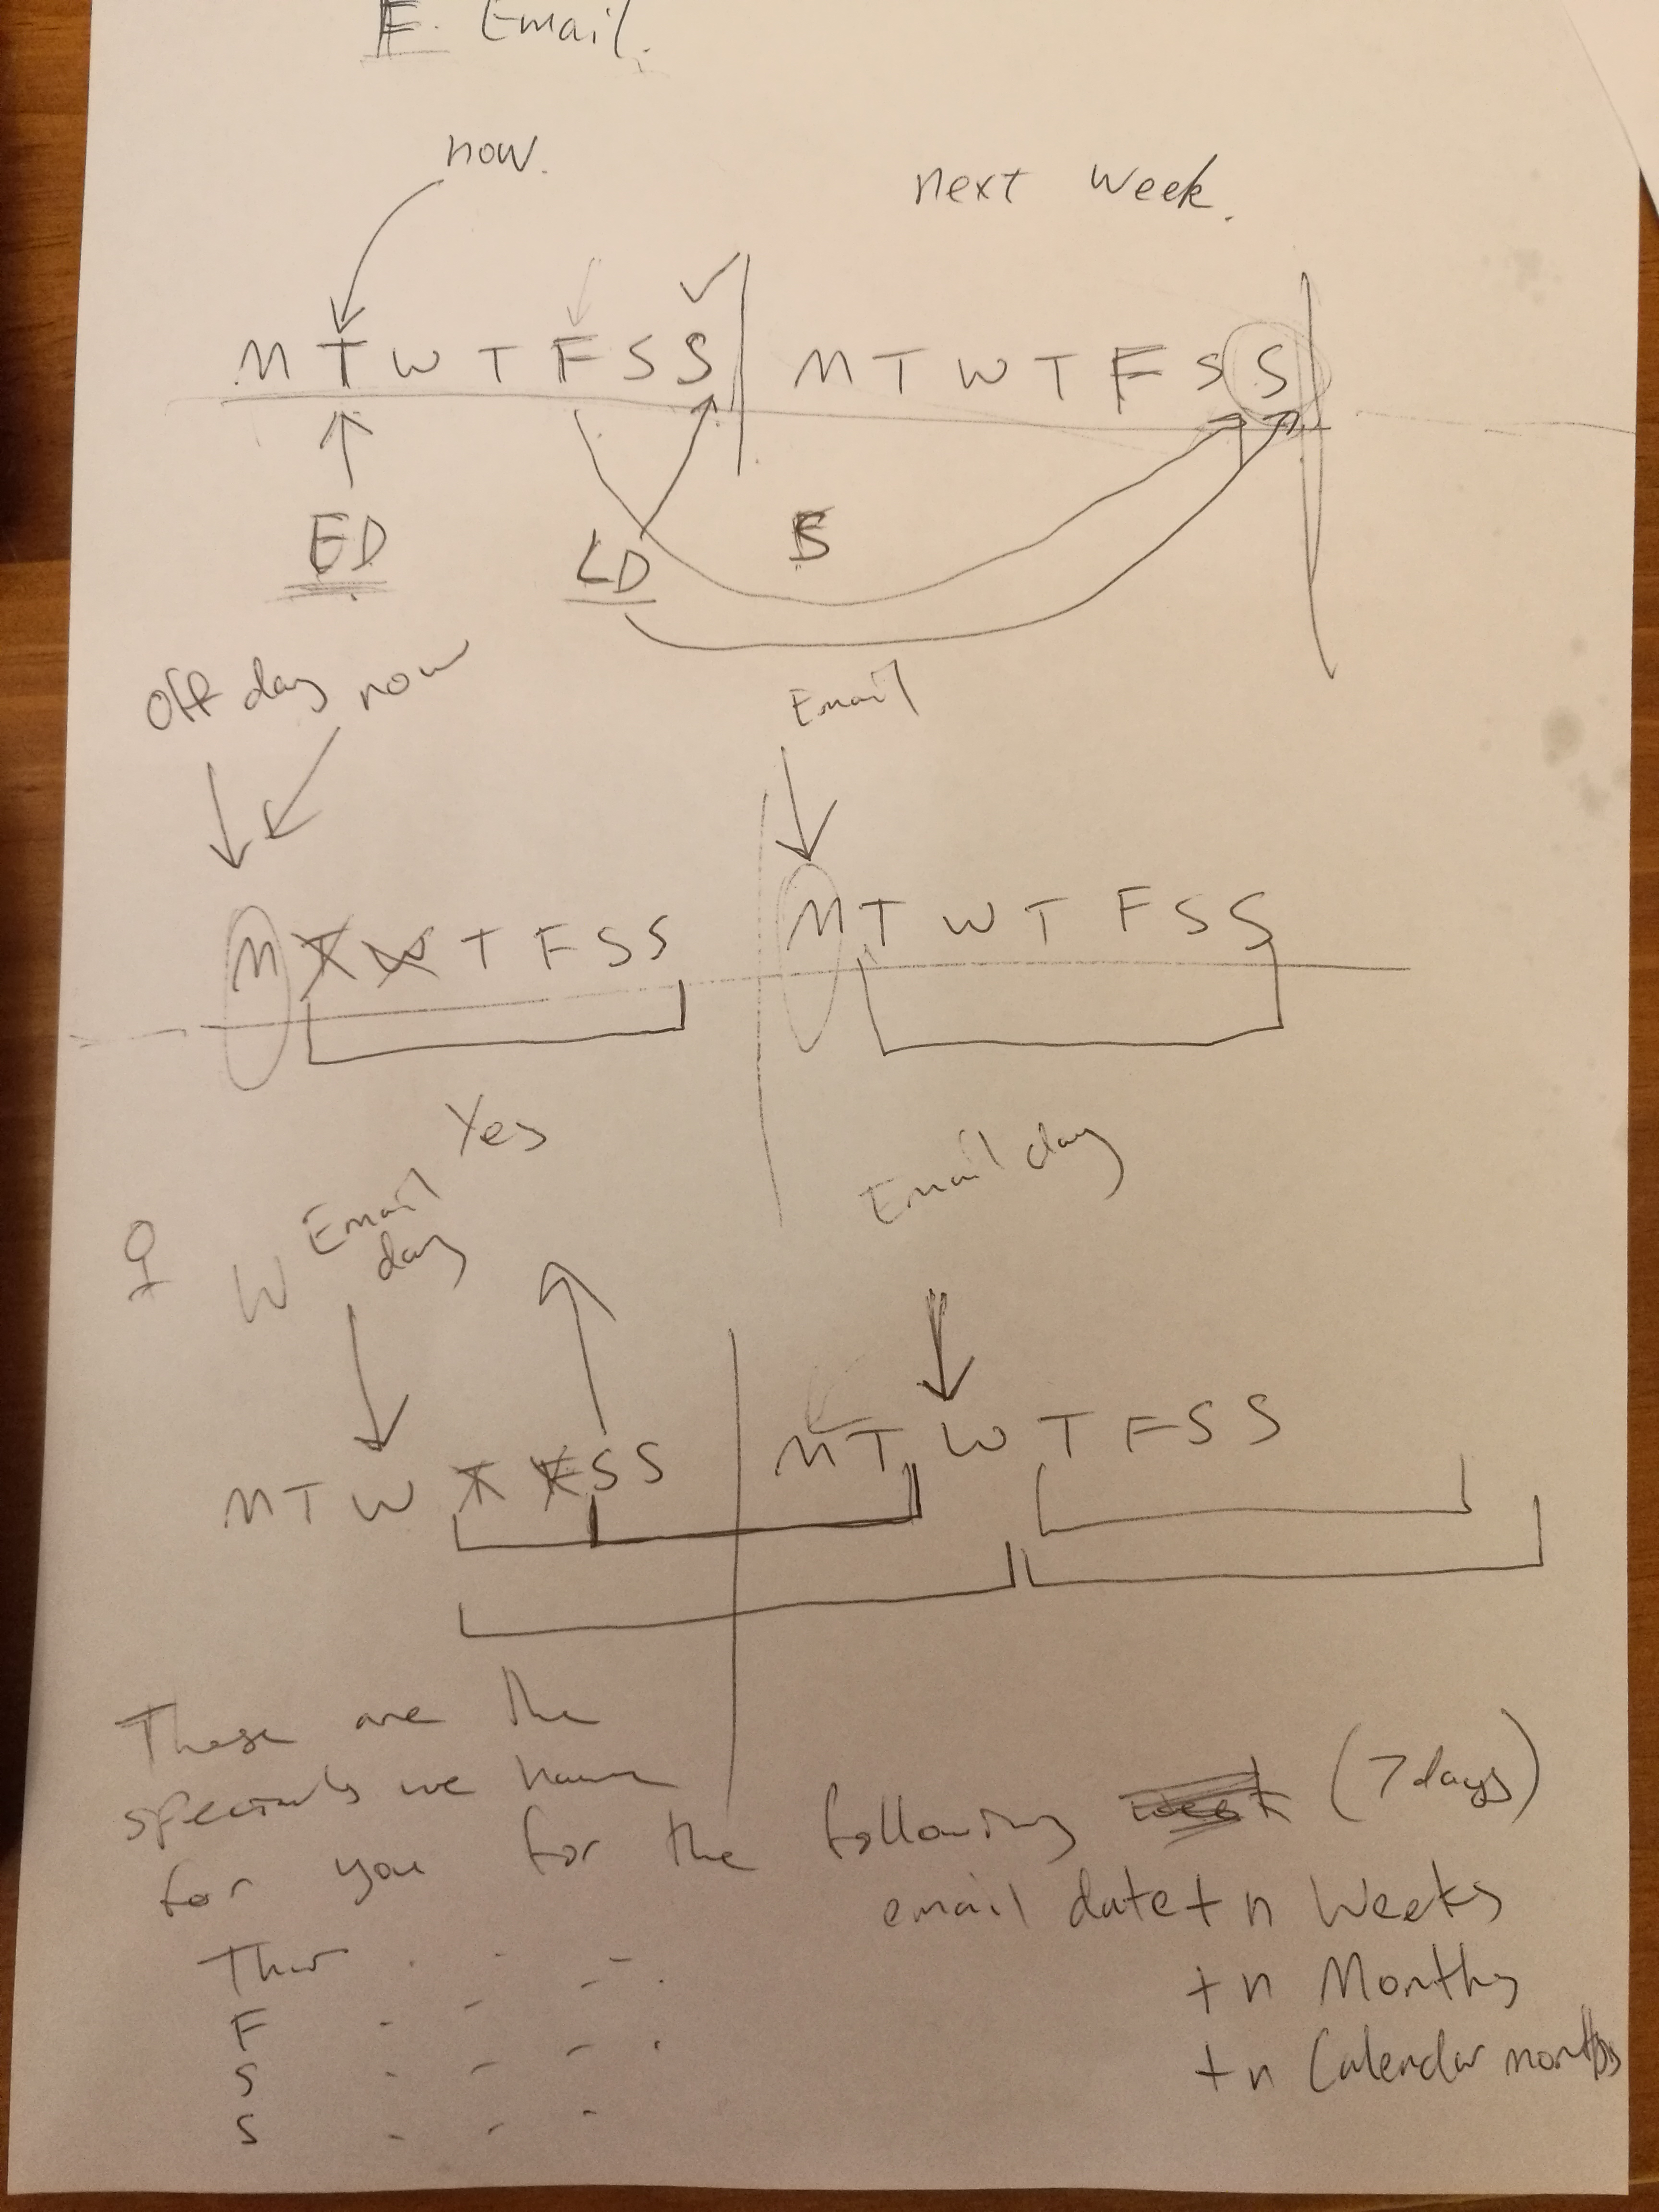 F. Email.
now.
next week.
M T W T F S S M T W T F S S
ED
LD
off day now
Email
M T W T F S S M T W T F S S
Yes
Email day
W Email
day
M T W T F S S M T W T F S S
These are the
specials we have
for you for the following week (7 days)
email date + n Weeks
Thur
+ n Months
F
+ n Calendar months
S
S